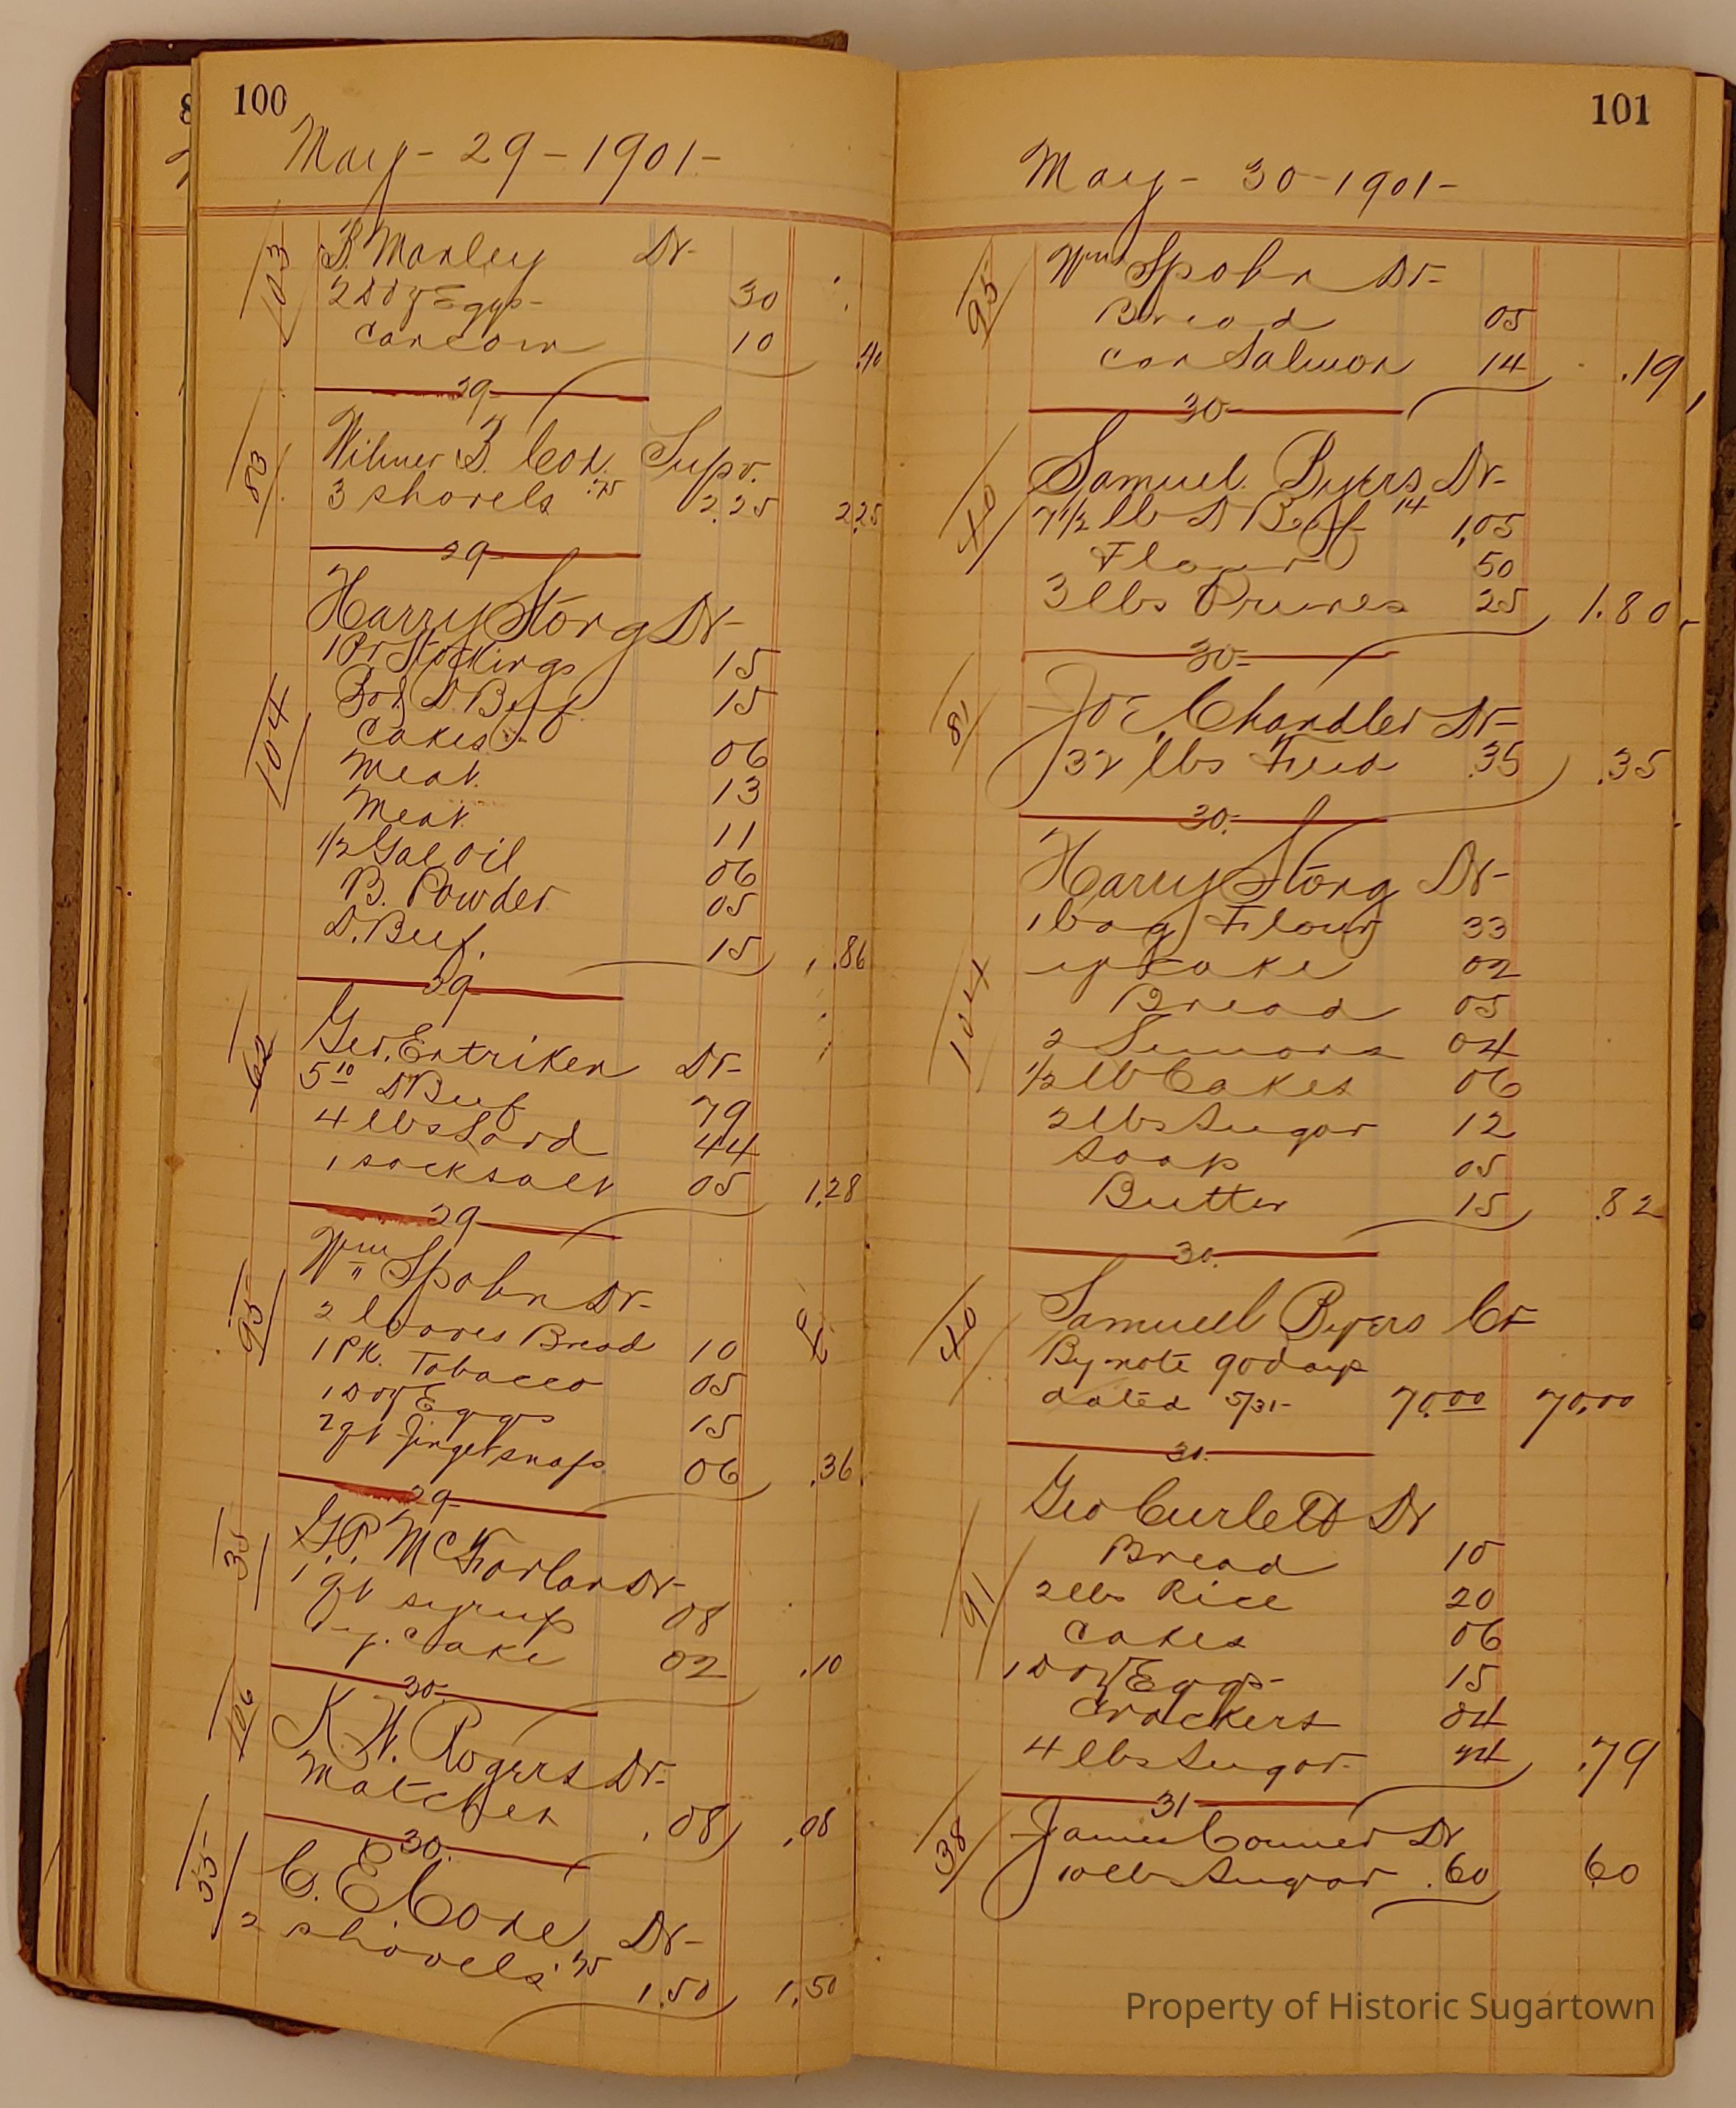 100
May - 29 - 1901 -
103
B. Marley Dr -
2 Doz Eggs - 30
Can corn 10 .40
29 -
83
Wilmer B. Cox. Supv.
3 shovels .75 2.25 2.25
29 -
Harry Stong Dr -
104
1 Pr Stockings 15
D. Beef 15
Cakes 06
Meat 13
Meat 11
1/2 Gal oil 06
B. Powder 05
D. Beef. 15 .86
29
62
Geo. Entriken Dr -
5 10 D Beef 79
4 lbs Lard 44
1 sack salt 05 1.28
29 -
95
Wm Spohn Dr -
2 loaves Bread 10
1 PK. Tobacco 05
1 Doz Eggs 15
2 qt Gingersnaps 06 .36
29 -
35
G.P. McFarlan Dr -
1 qt syrup 08
1 y. Cake 02 .10
30 -
106
K. W. Rogers Dr -
Matches .08 .08
30.
55
C. E. Coxe Dr -
2 shovels .75 1.50 1.50
101
May - 30 - 1901 -
95
Wm Spohn Dr -
Bread 05
can Salmon 14 .19
30 -
40
Samuel Byers Dr -
7 1/2 lb D Beef 14 1.05
Flour 50
3 lbs Prunes 25 1.80
30 -
81
Joe Chandler Dr -
32 lbs Feed .35 .35
30.
Harry Stong Dr -
104
1 bag Flour 33
y cake 02
Bread 05
2 04
1/2 lb Cakes 06
2 lbs Sugar 12
Soap 05
Butter 15 .82
30.
40
Samuel Byers Cr
By note 90 days
dated 5/31 - 70.00 70.00
31.
Geo Curlett Dr
91
Bread 10
2 lbs Rice 20
Cakes 06
1 Doz Eggs - 15
Crackers 04
4 lbs Sugar. 24 .79
31
38
James Conner Dr
10 lbs Sugar .60 60
Property of Historic Sugartown